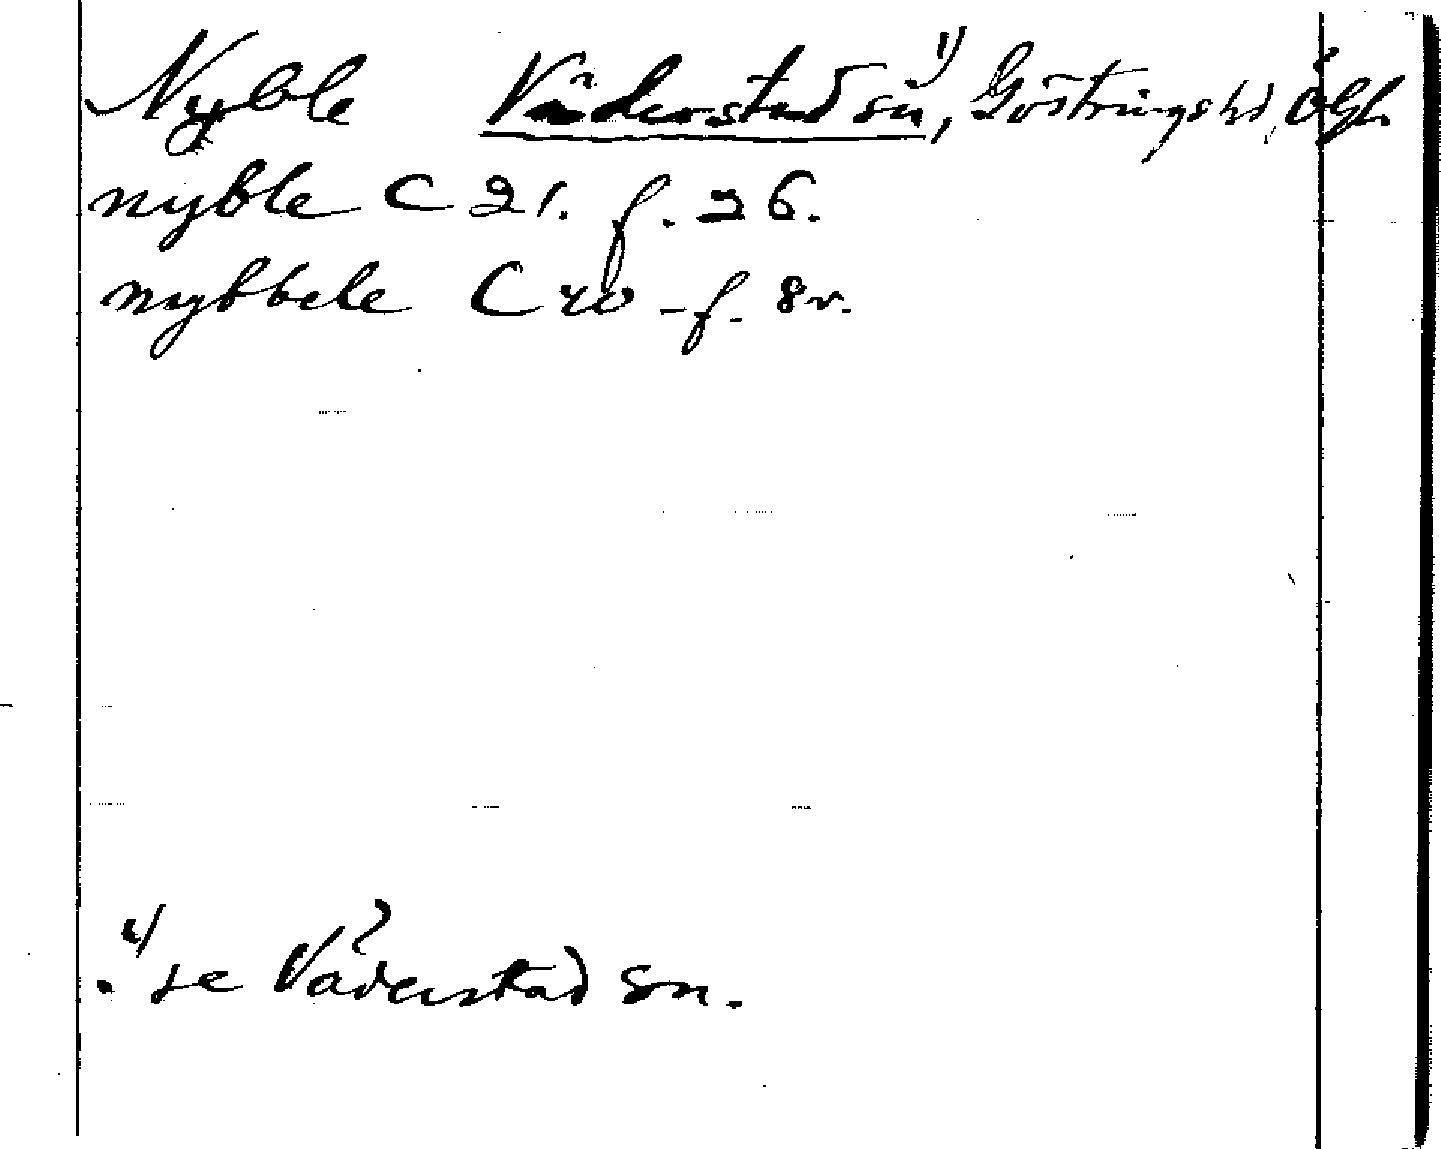 Nyble Väderstad sn ¹⁾, Göstrings hd, Ögl.
nyble C 21. f. 26.
nybbele C 20 f. 8 v.
¹⁾ se Väderstad sn.